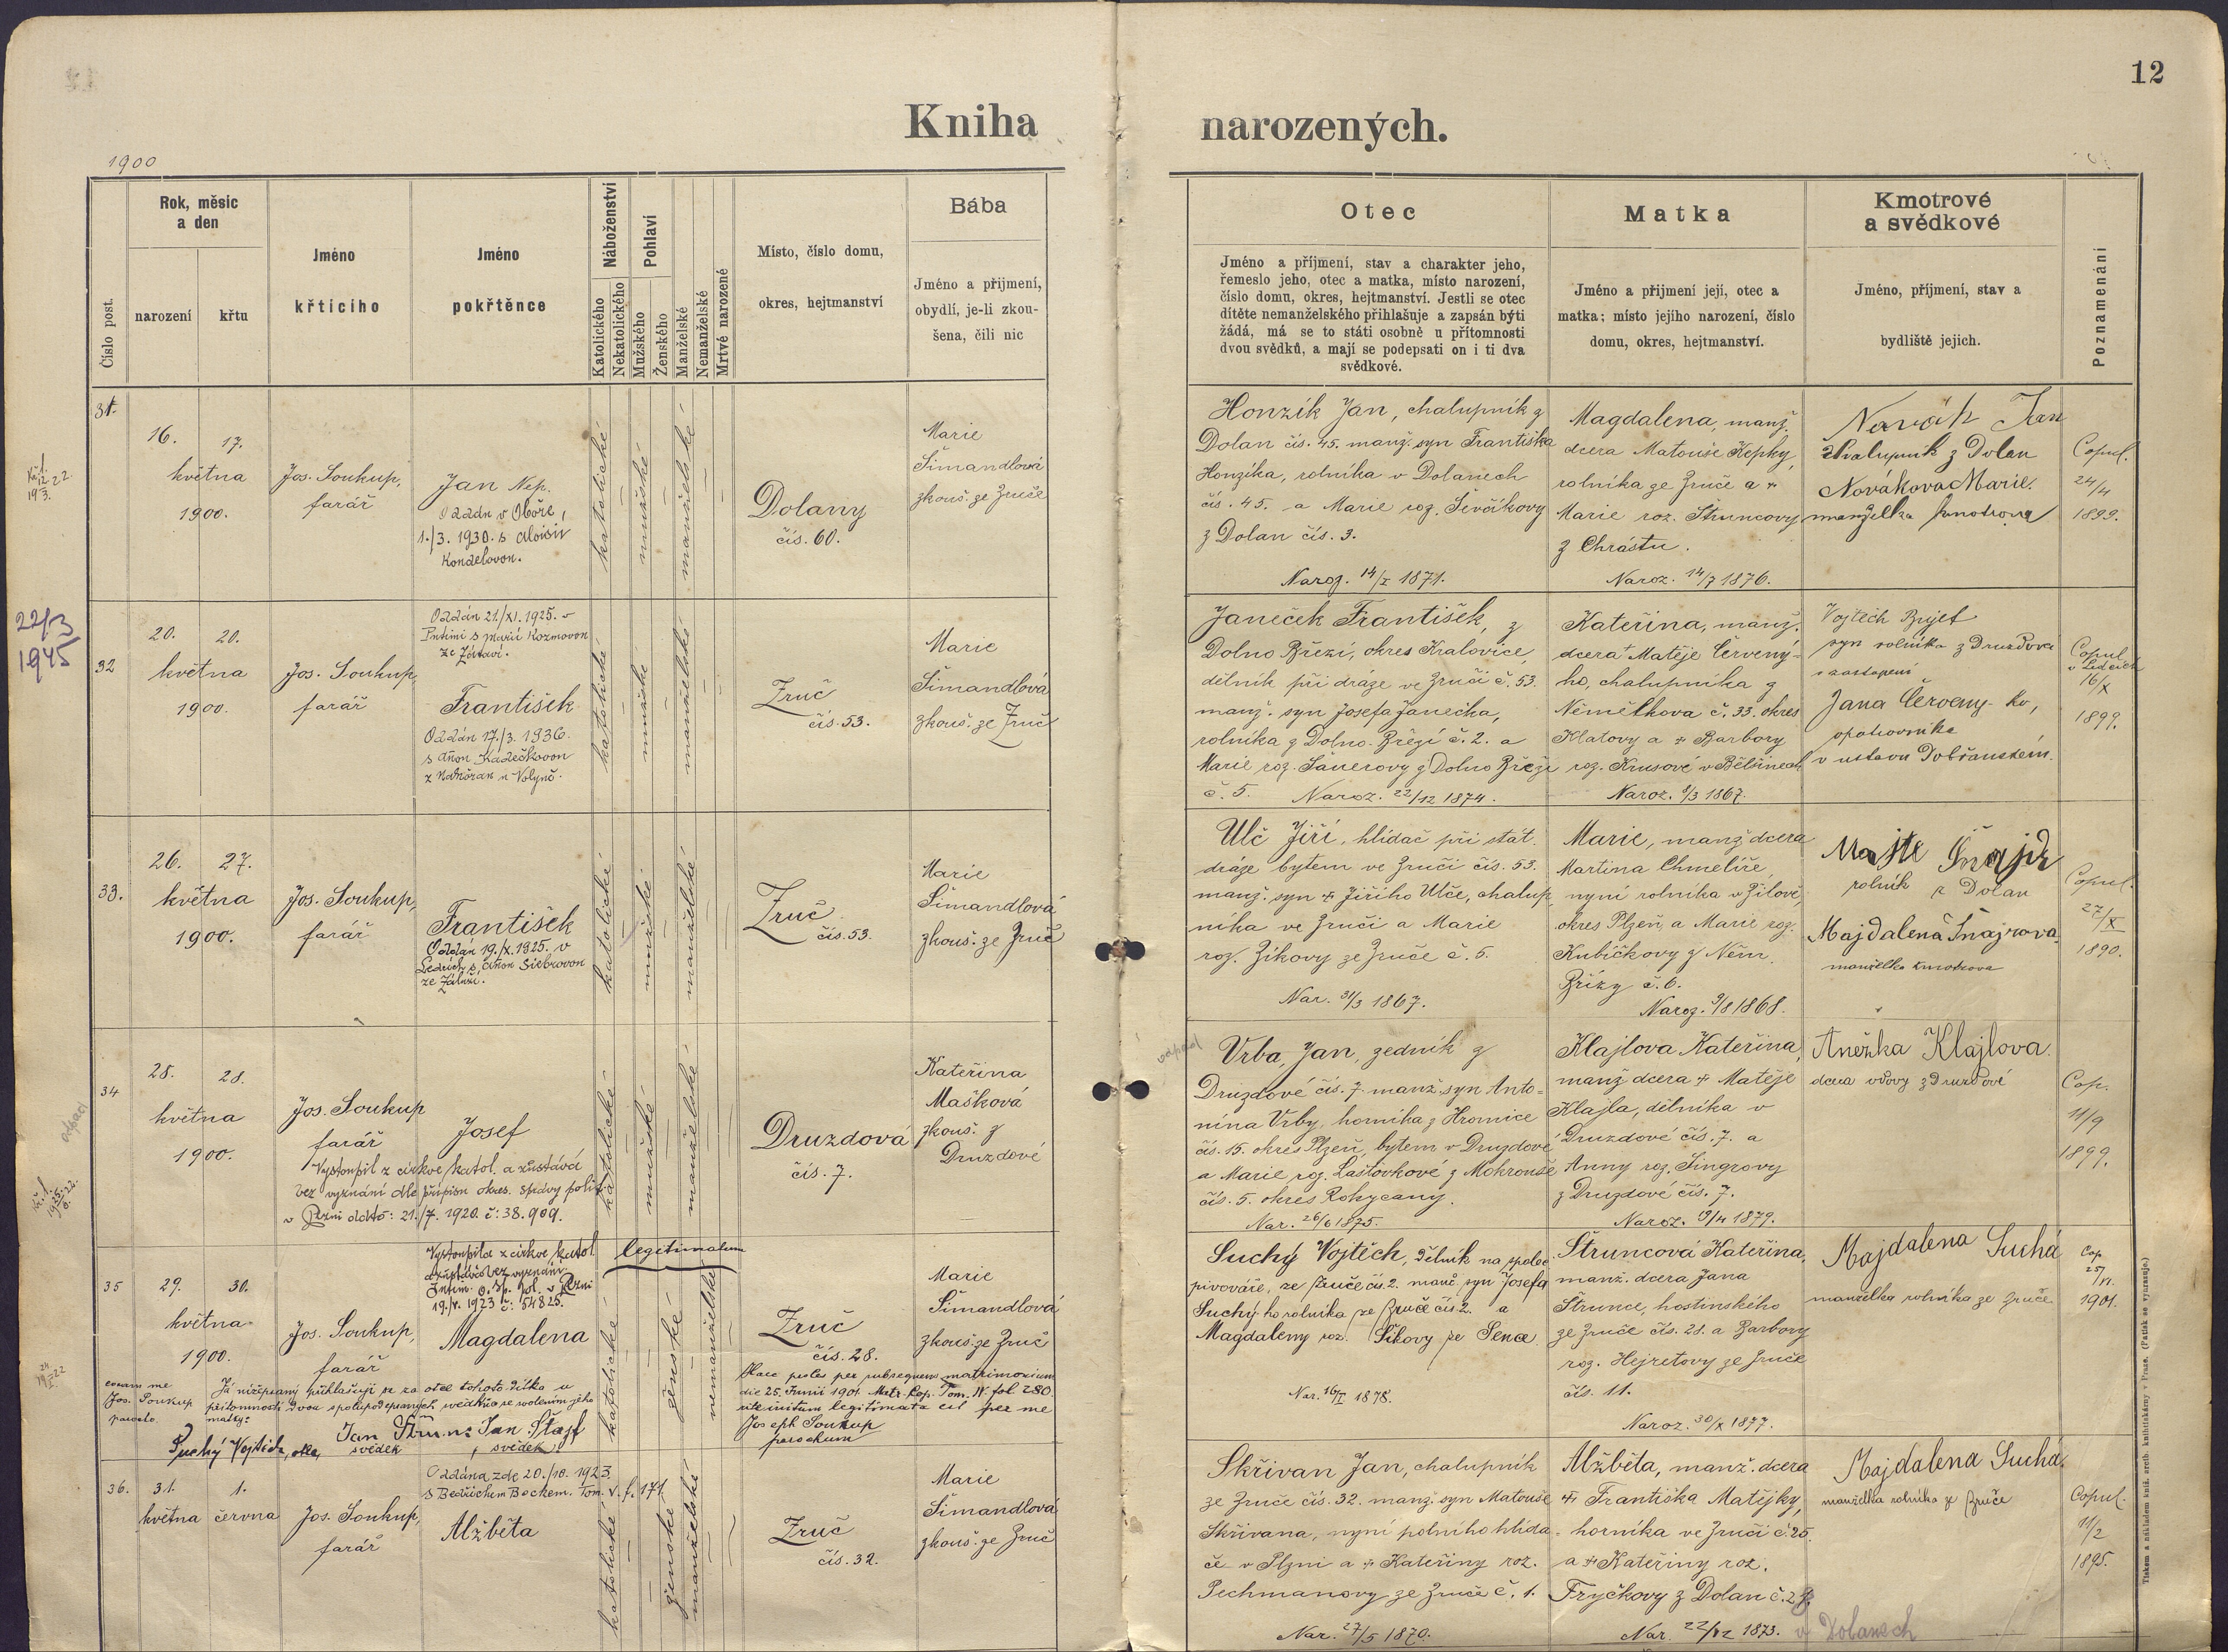 12
Kniha narozených.
1900
Číslo post.
Rok, měsíc a den
narození
křtu
Jméno
křtícího
Jméno
pokřtěnce
Náboženství
Katolického
Nekatolického
Pohlaví
Mužského
Ženského
Manželské
Nemanželské
Mrtvě narozené
Místo, číslo domu,
okres, hejtmanství
Bába
Jméno a přijmení,
obydlí, je-li zkou-
šena, čili nic
Otec
Jméno a příjmení, stav a charakter jeho,
řemeslo jeho, otec a matka, místo narození,
číslo domu, okres, hejtmanství. Jestli se otec
dítěte nemanželského přihlašuje a zapsán býti
žádá, má se to státi osobně u přítomnosti
dvou svědků, a mají se podepsati on i ti dva
svědkové.
Matka
Jméno a přijmení její, otec a
matka; místo jejího narození, číslo
domu, okres, hejtmanství.
Kmotrové
a svědkové
Jméno, příjmení, stav a
bydliště jejich.
Poznamenání
31.
16. 17.
května
1900.
Jos. Soukup,
farář
Jan Nep.
Oddán v Oboře,
1./3. 1930. s Aloisií
katolické
mužské
manželské
Dolany
čís. 60.
Marie
Šimandlová
zkouš. ze Zruče
Honzík Jan, chalupník z
Dolan čís. 45. manž. syn Františka
Honzíka, rolníka v Dolanech
čís. 45. a Marie roz. Ševčíkovy
z Dolan čís. 3.
Naroz. 14/I 1871.
Magdalena, manž.
dcera Matouše Kepky,
rolníka ze Zruče a +
Marie roz. Štruncovy
z Chrástu.
Naroz. 14/7 1876.
Novák Jan
chalupník z Dolan
Nováková Marie.
manželka kmotrova
Copul.
24/4
1899.
22/3
1945
32
20. 20.
května
1900.
Jos. Soukup,
farář
Oddán 21./XI. 1925. v
s Marií Kozmovou
František
Oddán 17./3. 1936.
s Annou
katolické
mužské
manželské
Zruč
čís. 53.
Marie
Šimandlová
zkouš. ze Zruč
Janeček František, z
Dolno Březí, okres Kralovice,
dělník při dráze ve Zruči č. 53.
manž. syn Josefa Janečka,
rolníka z Dolno-Březí č. 2. a
Marie roz. Šauerovy z Dolno Březí
č. 5. Naroz. 22/12 1874.
Kateřina, manž.
dcera + Matěje Červený-
ho, chalupníka z
Němětkova č. 33. okres
Klatovy a + Barbory
roz. Krusové v Bělšinech
Naroz. 8/3 1867.
Vojtěch Brjet
syn rolníka z Druzdové
v zastopení
Jana Červený-ho,
opatrovníka
v ustavu Dobřanském.
Copul.
v Ledcích
16/X
1899.
33.
26. 27.
května
1900.
Jos. Soukup,
farář
František
Oddán 19./X. 1925. v
Ledcích s Annou Siebrovou
ze Záluží.
katolické
mužské
manželské
Zruč
čís. 53.
Marie
Šimandlová
zkouš. ze Zruč
Ulč Jiří, hlídač při stát.
dráze bytem ve Zruči čís. 53.
manž. syn + Jiřího Ulče, chalup-
níka ve Zruči a Marie
roz. Zikovy ze Zruče č. 5.
Nar. 31/3 1867.
Marie, manž dcera
Martina Chmelíře,
nyní rolníka v Žilově,
okres Plzeň, a Marie roz.
Kubíčkovy z Něm.
Břízy č. 6.
Naroz. 9/8 1868.
rolník z Dolan
Majdalena Šnajrova
manželka kmotrova
Copul.
27/X
1890.
34
28. 28.
května
1900.
Jos. Soukup
farář
Josef
Vystoupil z církve katol. a zůstává
bez vyznání dle přípisu okres. správy polit.
v Plzni ddto: 21./7. 1920. č: 38.909.
katolické
mužské
manželské
Druzdová
čís. 7.
Kateřina
Mašková
zkouš. z
Druzdové
Vrba, Jan, zedník z
Druzdové čís. 7. manž. syn Anto-
nína Vrby, horníka z Hromice
čís. 15. okres Plzeň, bytem v Druzdové
a Marie roz. Laštovkové z Mokrouše
čís. 5. okres Rokycany.
Nar. 26/6 1875.
Klajlova Kateřina,
manž dcera + Matěje
Klajla, dělníka v
Druzdové čís. 7. a
Anny roz. Singrovy
z Druzdové čís. 7.
Naroz. 19/4 1879.
Anežka Klajlova.
dcera vdovy z Druzdové
Cop.
11/9
1899.
35
29. 30.
května
1900.
Jos. Soukup,
farář
Vystoupila z církve katol.
a zůstává bez vyznání
v Plzni
19./V. 1923 č: 54825.
Magdalena
legitimatum
katolické
ženské
nemanželské
Zruč
čís. 28.
Haec proles per subsequens matrimonium
die 25. Junii 1901. Matr. Kop. Tom. IV. fol. 280.
rite initum legitimata est per me
Joseph Soukup
parochum
Marie
Šimandlová
zkouš. ze Zruč
coram me
Jos. Soukup
parocho
Já nížepsaný přihlašuji se za otce tohoto dítka u
přítomnosti dvou spolupodepsaných svědků a se svolením jeho
matky:
Suchý Vojtěch, otec,
svědek
Jan Štajf
svědek
Suchý Vojtěch, dělník na společ
pivováře, ze Zruče čís 2. manž. syn Josefa
Suchý ho rolníka ze Zruče čís 2. a
Magdaleny roz. Šikovy ze Sence
Nar. 16/II 1878.
Štruncová Kateřina,
manž. dcera Jana
Štrunce, hostinského
ze Zruče čís. 28. a Barbory
roz. Hejretovy ze Zruče
čís. 11.
Naroz. 30/X 1877.
Majdalena Suchá
manželka rolníka ze Zruče
Cop
25/VI.
1901.
36.
31. 1.
května června
Jos. Soukup,
farář
Oddána zde 20./10. 1923.
s Bedřichem Bockem. Tom. V. f. 171.
Alžběta
katolické
ženské
manželské
Zruč
čís. 32.
Marie
Šimandlová
zkouš. ze Zruč
Skřivan Jan, chalupník
ze Zruče čís. 32. manž. syn Matouše
Skřivana, nyní polního hlída-
če v Plzni a + Kateřiny roz.
Pechmanovy ze Zruče č. 1.
Nar. 27/5 1870.
Alžběta, manž. dcera
+ Františka Matějky,
horníka ve Zruči č. 25.
a + Kateřiny roz.
Fryčkovy z Dolan č. 2
Nar. 22/12 1873.
v Dolanech
Majdalena Suchá.
manželka rolníka ze Zruče
Copul.
11/2
1895.
Tiskem a nákladem kníž. arcib. knihtiskárny v Praze. (Patisk se vyhrazuje.)